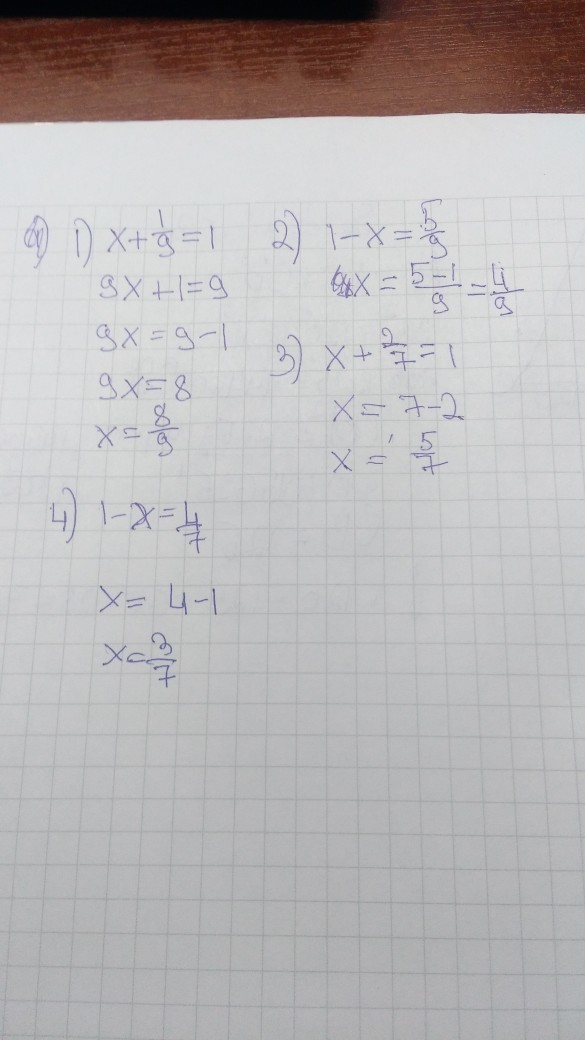 1) x + 1/9 = 1
9x + 1 = 9
9x = 9 - 1
9x = 8
x = 8/9
2) 1 - x = 5/9
x = (5-1)/9 = 4/9
3) x + 2/7 = 1
x = 7 - 2
x = 5/7
4) 1 - x = 4/7
x = 4 - 1
x = 3/7